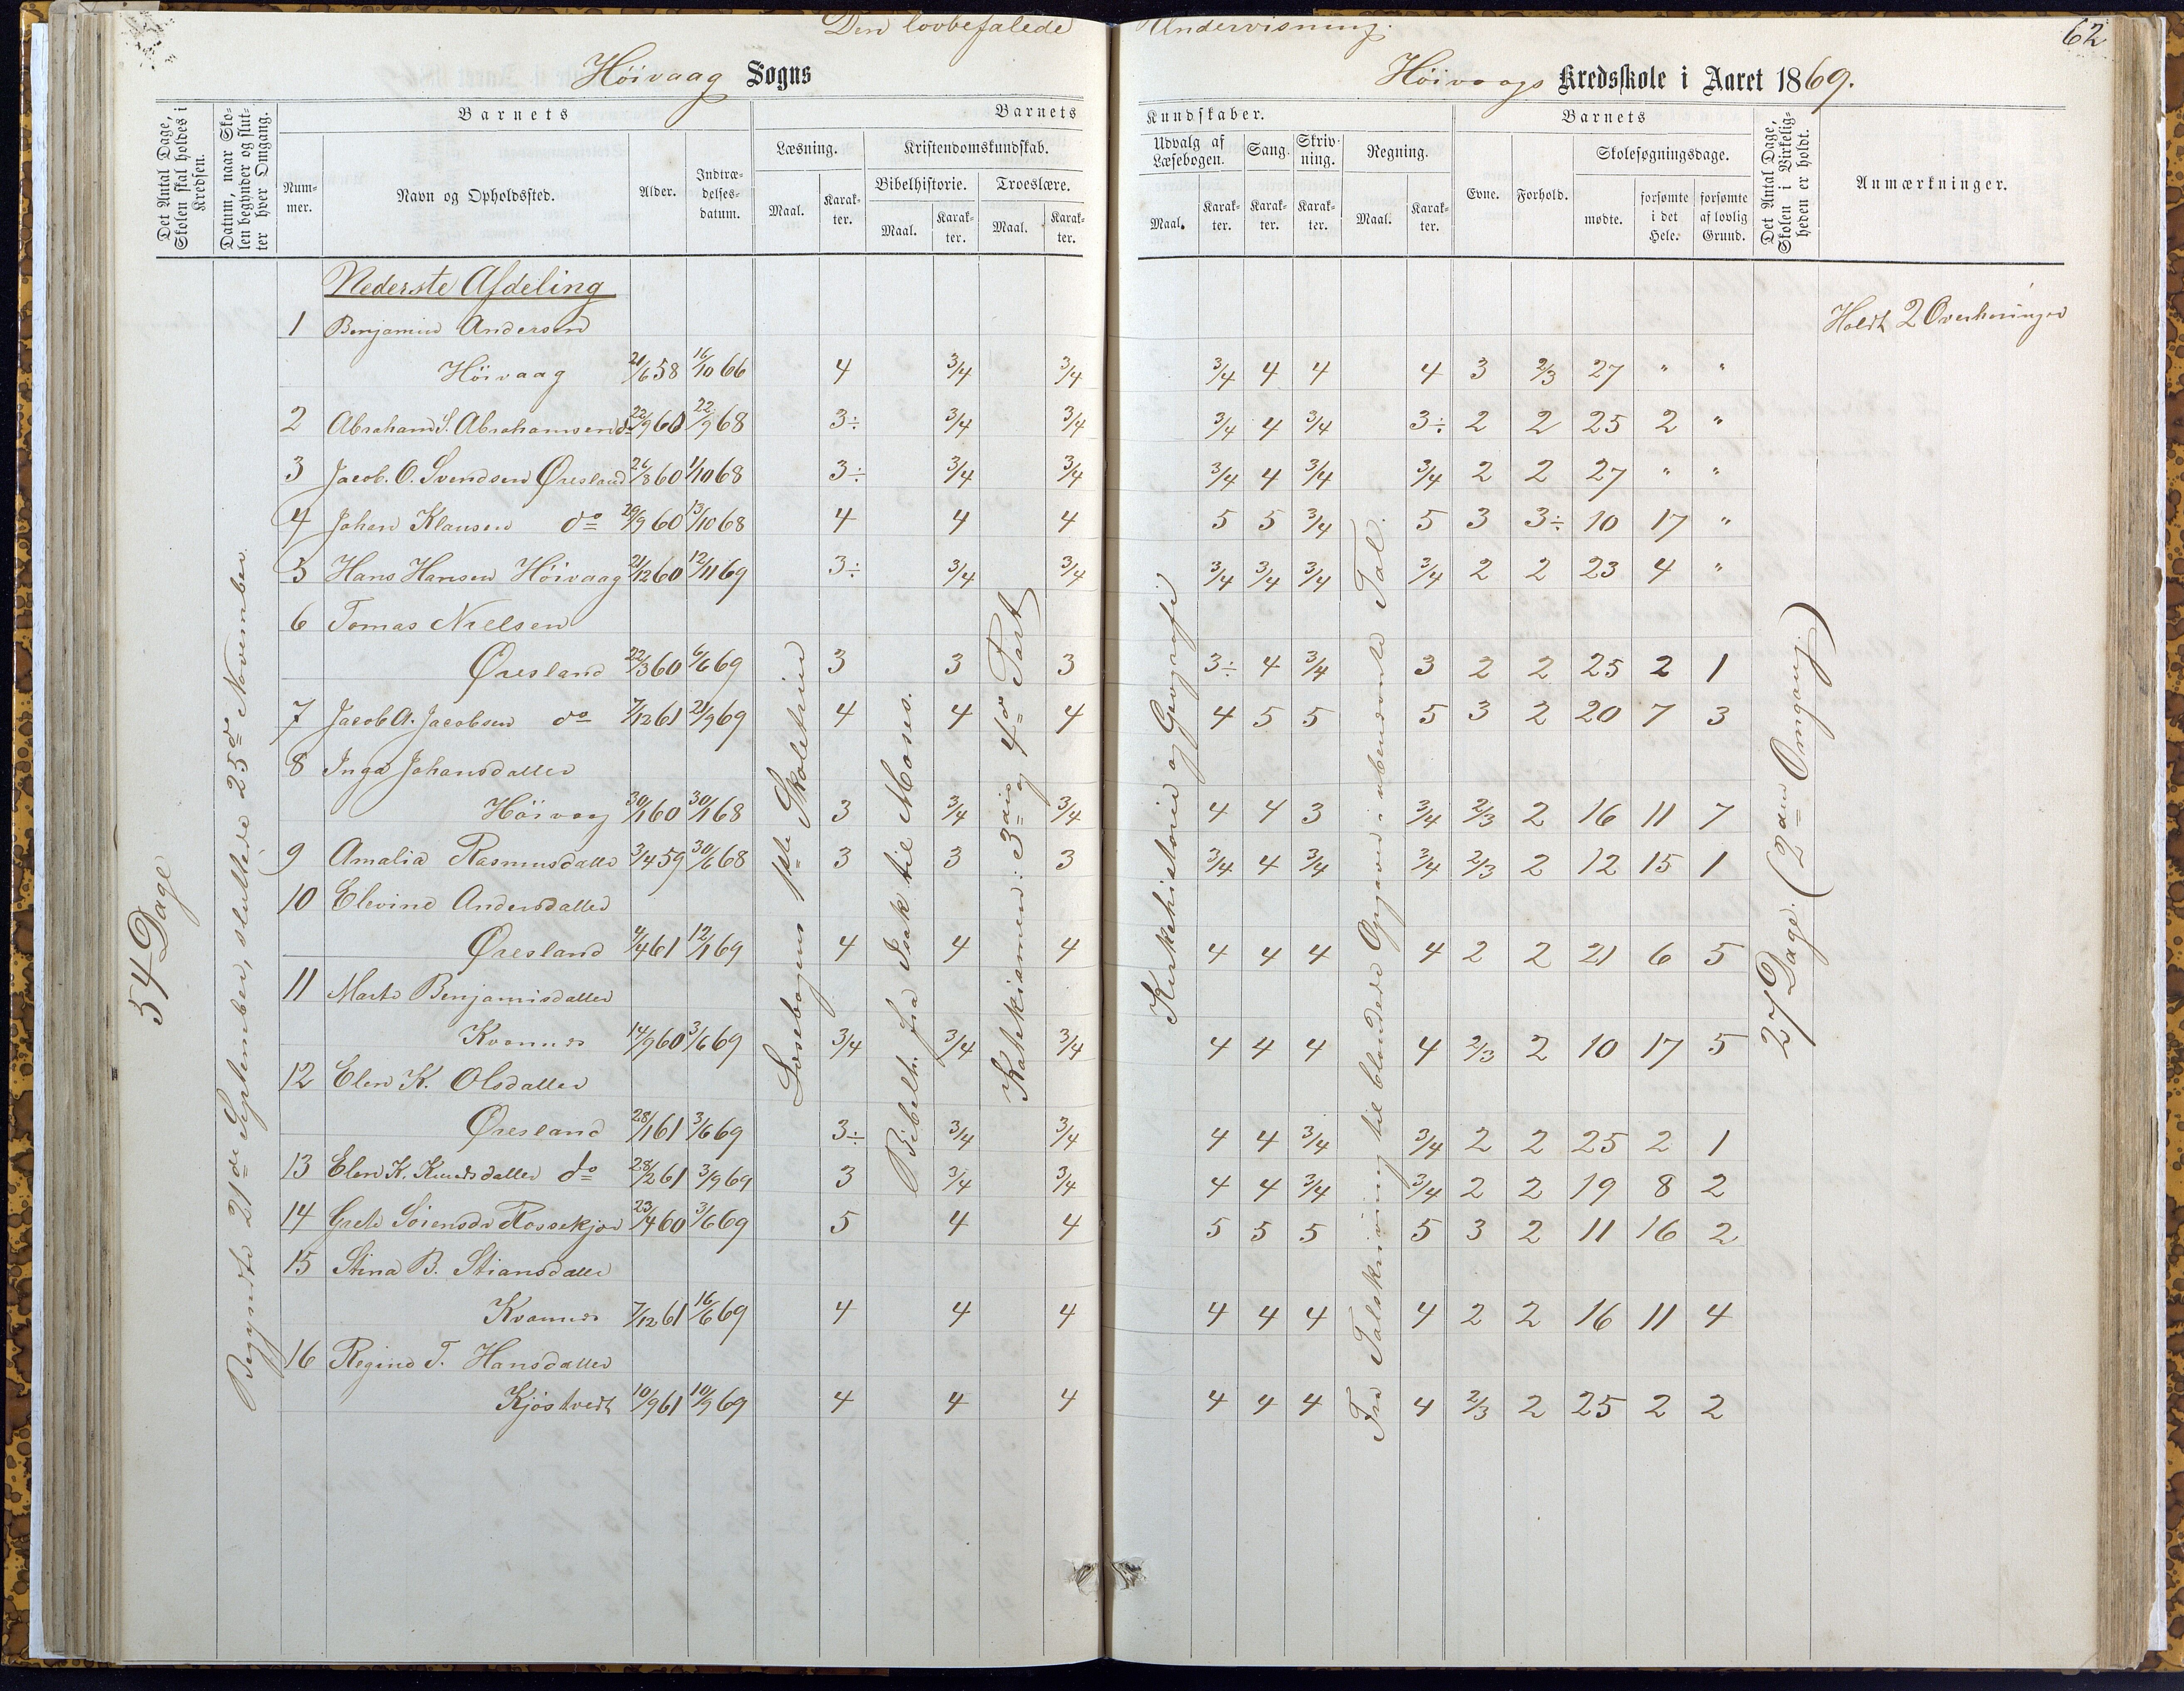 Den lovbefalede Undervisning.
62
Höivaag Sogns
Höivaags Kredsskole i Aaret 1869.
Det Antal Dage, Skolen skal holdes i Kredsen.
Datum, naar Skolen begynder og slutter hver Omgang.
Barnets
Barnets Kundskaber.
Barnets
Det Antal Dage, Skolen i Virkeligheden er holdt.
Anmærkninger.
Nummer.
Navn og Opholdssted.
Alder.
Indtrædelsesdatum.
Læsning.
Kristendomskundskab.
Bibelhistorie.
Troeslære.
Udvalg af Læsebogen.
Sang.
Skrivning.
Regning.
Evne.
Forhold.
Skolesøgningsdage.
Maal. Karakter. Maal. Karakter. Maal. Karakter.
Maal. Karakter. Karakter. Karakter. Maal. Karakter.
mødte. forsømte i det Hele. forsømte af lovlig Grund.
54 Dage
Begyndte 21de September, sluttede 25de November.
Læsebogens 1ste Skoletrin
Bibelh. fra Isak til Moses.
Katekismen: 3die og 4de Part
Kirkehistorie og Geografi
Fra Talskrivning til blandede Opgaver i ubenævnte Tal.
27 Dage. (2den Omgang)
Nederste Afdeling
Holdt 2 Overhöringer
1 Benjamin Andersen
Höivaag 21/6 58 16/10 66 4 3/4 3/4 3/4 4 4 4 3 2/3 27 " "
2 Abraham S. Abrahamsen do 22/9 60 22/9 68 3÷ 3/4 3/4 3/4 4 3/4 3÷ 2 2 25 2 "
3 Jacob. O. Svendsen Øresland 26/8 60 1/10 68 3÷ 3/4 3/4 3/4 4 3/4 3/4 2 2 27 " "
4 Johan Klausen do 29/9 60 13/10 68 4 4 4 5 5 3/4 5 3 3÷ 10 17 "
5 Hans Hansen Höivaag 21/12 60 12/11 69 3÷ 3/4 3/4 3/4 3/4 3/4 3/4 2 2 23 4 "
6 Tomas Nielsen
Øresland 22/3 60 6/6 69 3 3 3 3÷ 4 3/4 3 2 2 25 2 1
7 Jacob A. Jacobsen do 7/12 61 21/9 69 4 4 4 4 5 5 5 3 2 20 7 3
8 Inga Johansdatter
Höivag 30/1 60 30/1 68 3 3/4 3/4 4 4 3 3/4 2/3 2 16 11 7
9 Amalia Rasmusdatter 3/4 59 30/6 68 3 3 3 3/4 4 3/4 3/4 2/3 2 12 15 1
10 Elevine Andersdatter
Øresland 4/4 61 12/1 69 4 4 4 4 4 4 4 2 2 21 6 5
11 Marte Benjamisdatter
Kvannes 14/9 60 3/6 69 3/4 3/4 3/4 4 4 4 4 2/3 2 10 17 5
12 Elen K. Olsdatter
Øresland 28/1 61 3/6 69 3÷ 3/4 3/4 4 4 3/4 3/4 2 2 25 2 1
13 Elen K. Knudsdatter do 28/2 61 3/9 69 3 3/4 3/4 4 4 3/4 3/4 2 2 19 8 2
14 Grete Sörensdr 23/4 60 3/6 69 5 4 4 5 5 5 5 3 2 11 16 2
15 Stina B. Stiansdatter
Kvannes 7/12 61 16/6 69 4 4 4 4 4 4 4 2 2 16 11 4
16 Regine T. Hansdatter
Kjöstvedt 10/9 61 10/9 69 4 4 4 4 4 4 4 2/3 2 25 2 2